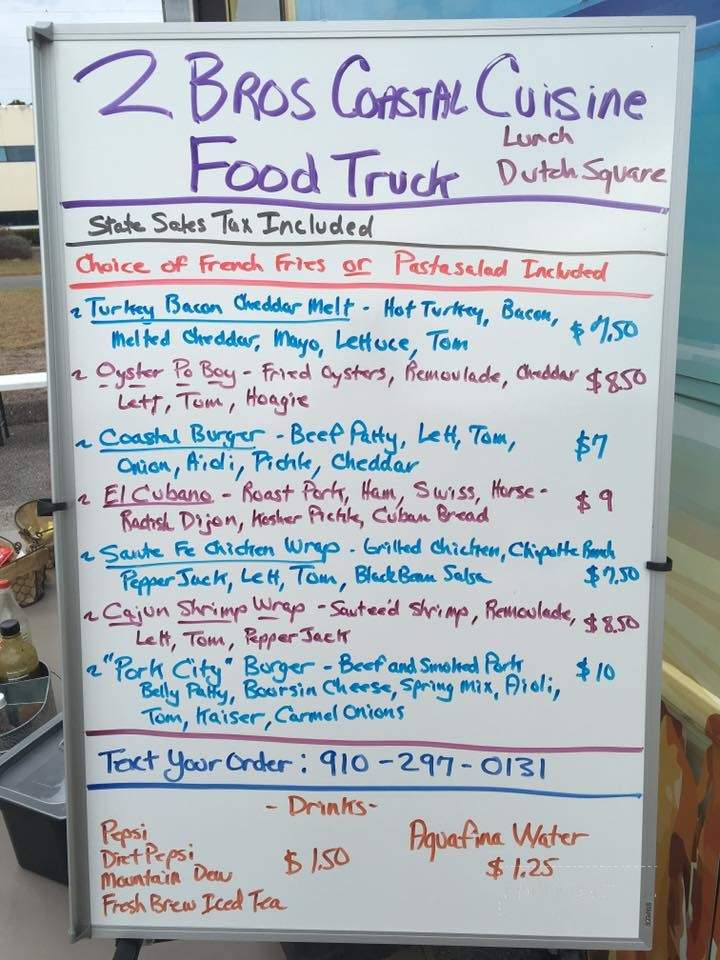 2 Bros Coastal Cuisine
Food Truck
Lunch
Dutch Square
State Sales Tax Included
Choice of French Fries or Pastasalad Included
~ Turkey Bacon Cheddar Melt - Hot Turkey, Bacon,
Melted Cheddar, Mayo, Lettuce, Tom
$7.50
~ Oyster Po Boy - Fried Oysters, Remoulade, Cheddar
Lett, Tom, Hoagie
$8.50
~ Coastal Burger - Beef Patty, Lett, Tom,
Onion, Aioli, Pickle, Cheddar
$7
~ El Cubano - Roast Pork, Ham, Swiss, Horse-
Radish Dijon, Kosher Pickle, Cuban Bread
$9
~ Sante Fe Chicken Wrap - Grilled Chicken, Chipotle Ranch
Pepper Jack, Lett, Tom, Black Bean Salsa
$7.50
~ Cajun Shrimp Wrap - Sauteéd Shrimp, Remoulade,
Lett, Tom, Pepper Jack
$8.50
~ "Pork City" Burger - Beef and Smoked Pork
Belly Patty, Boursin Cheese, Spring Mix, Aioli,
Tom, Kaiser, Carmel Onions
$10
Text Your Order: 910-297-0131
- Drinks -
Pepsi
Diet Pepsi
Mountain Dew
Fresh Brew Iced Tea
$1.50
Aquafina Water
$1.25